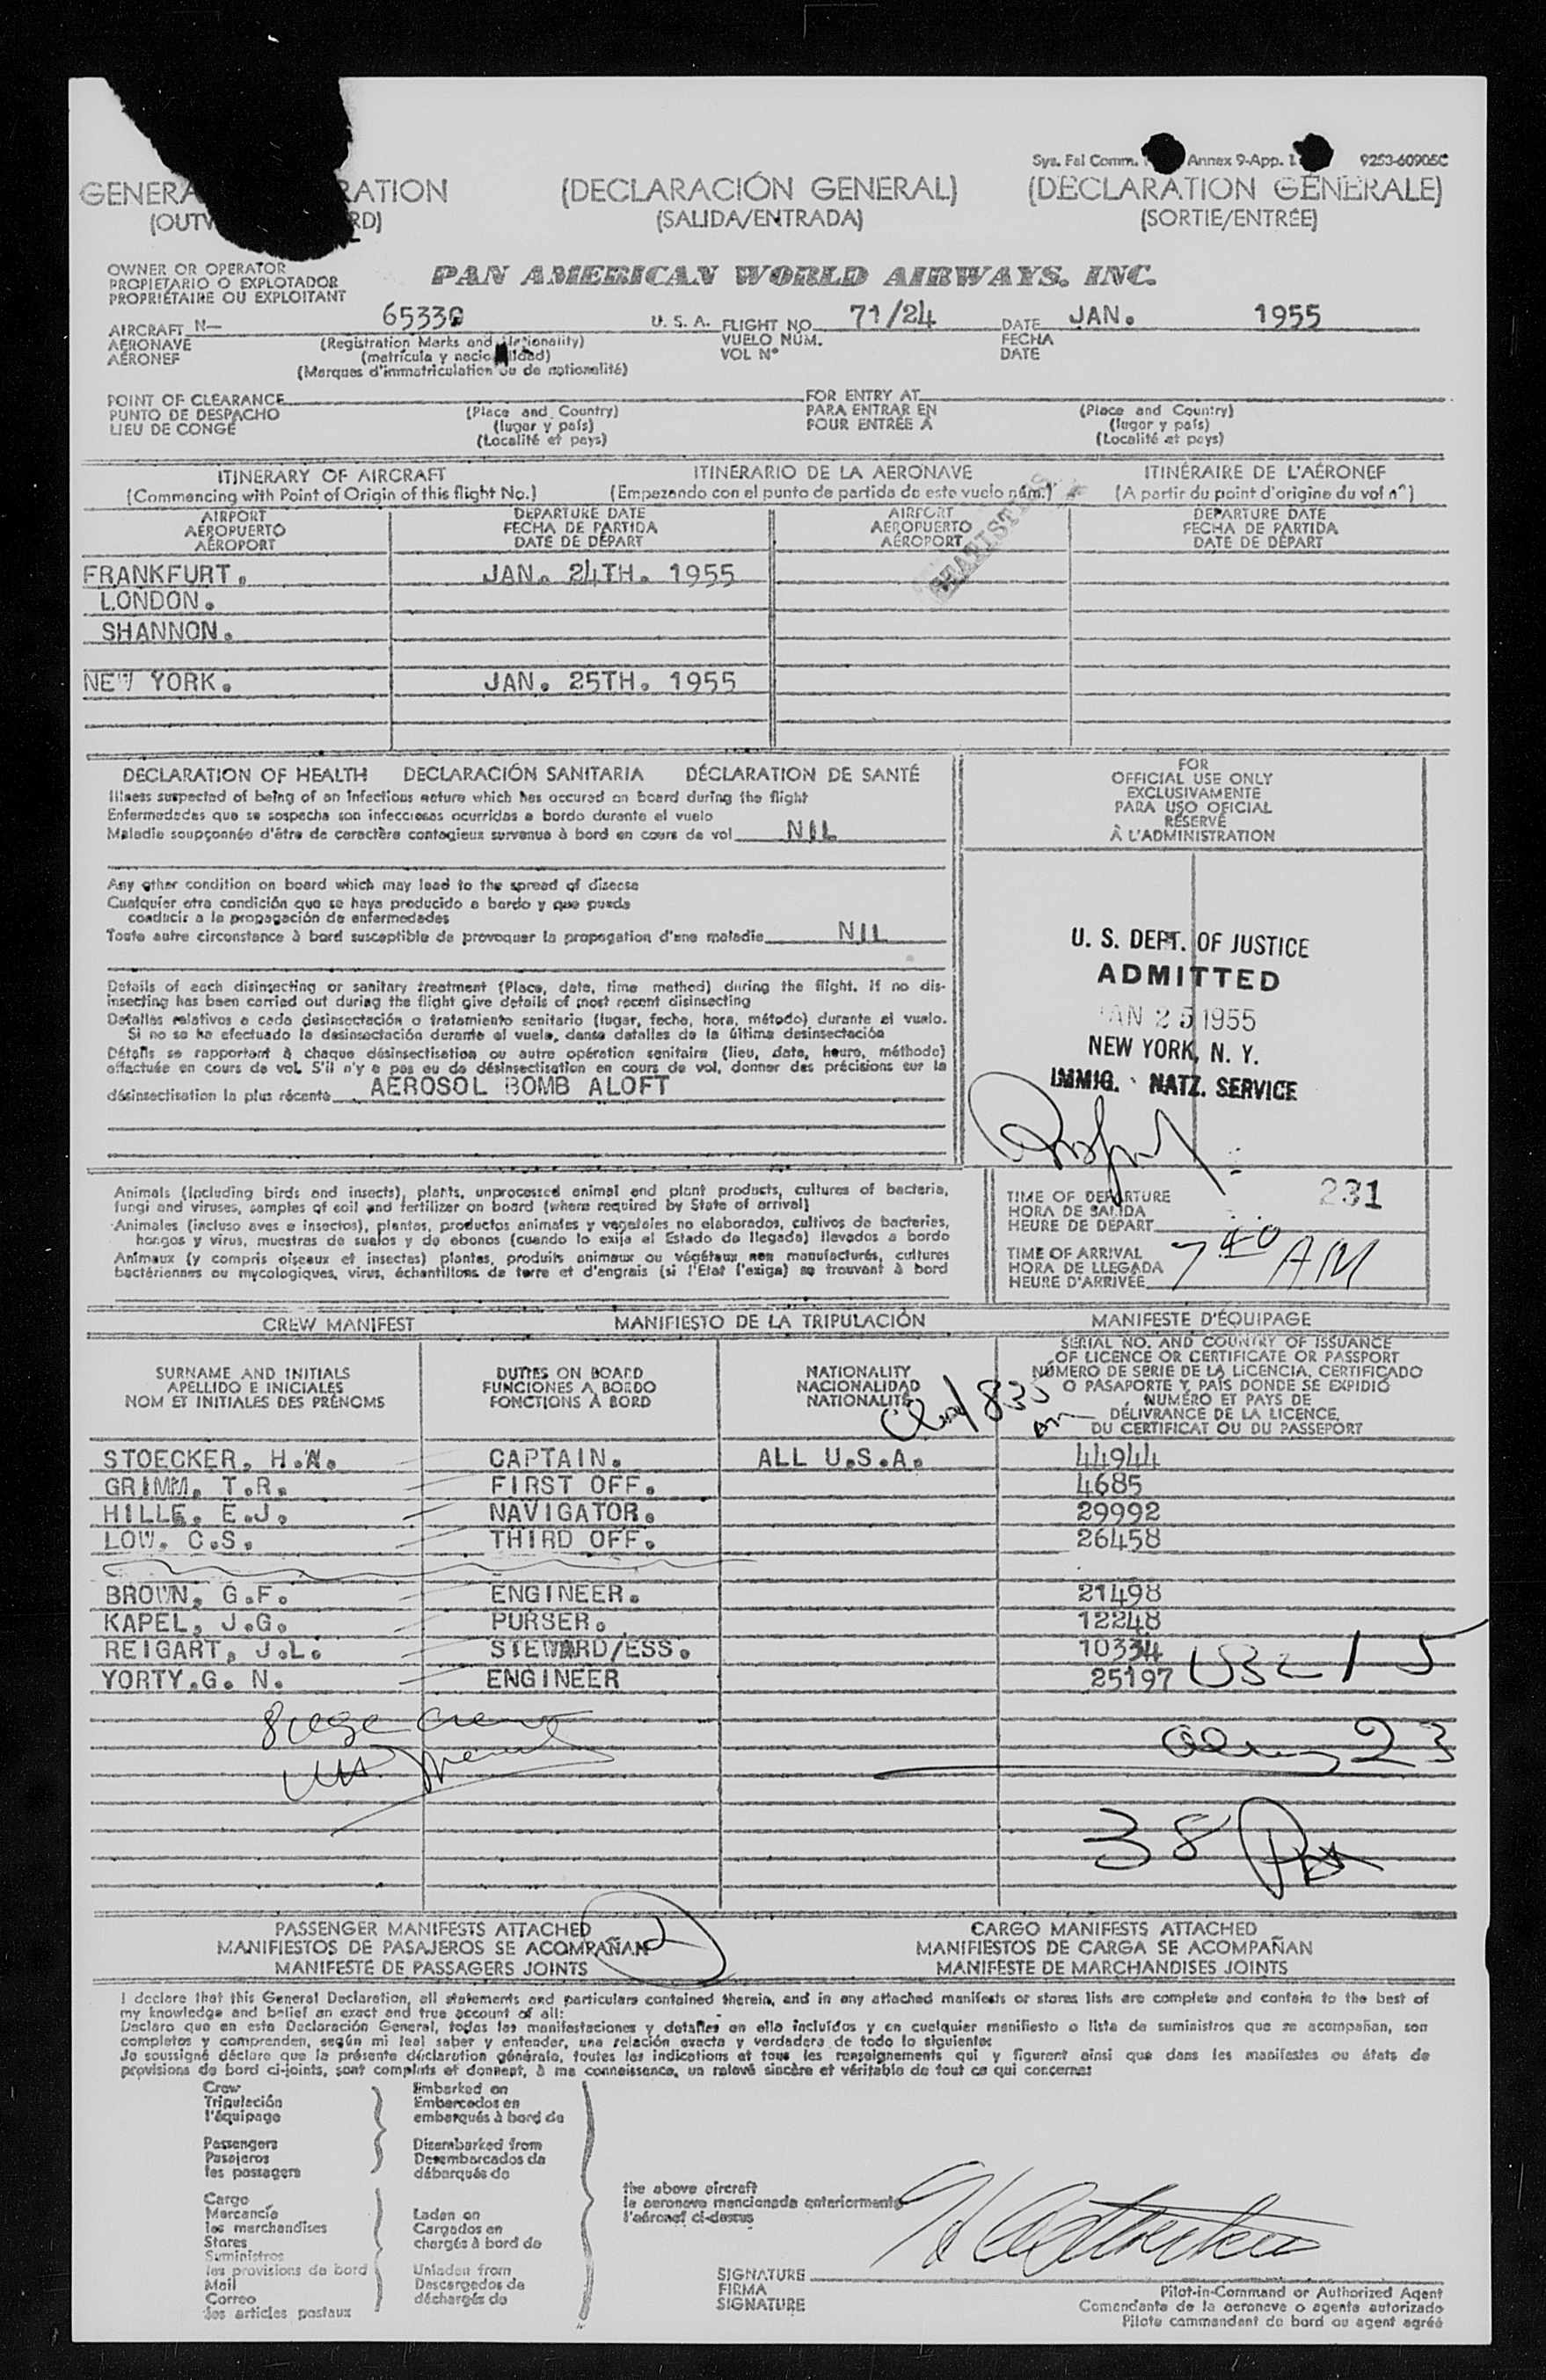 Sys. Fal Comm. Annex 9-App. 1 9253-60905C
(DECLARACIÓN GENERAL) (DECLARATION GÉNÉRALE)
(SALIDA/ENTRADA) (SORTIE/ENTRÉE)
OWNER OR OPERATOR
PROPIETARIO O EXPLOTADOR
PROPRIÉTAIRE OU EXPLOITANT
PAN AMERICAN WORLD AIRWAYS, INC.
AIRCRAFT N- U. S. A. FLIGHT NO. 71/24 DATE JAN. 1955
AERONAVE (Registration Marks and Nationality) VUELO NÚM. FECHA
AÉRONEF (matrícula y nacionalidad) VOL N° DATE
(Marques d'immatriculation ou de nationalité)
POINT OF CLEARANCE FOR ENTRY AT
PUNTO DE DESPACHO (Place and Country) PARA ENTRAR EN (Place and Country)
LIEU DE CONGÉ (lugar y país) POUR ENTRÉE À (lugar y país)
(Localité et pays) (Localité et pays)
ITINERARY OF AIRCRAFT ITINERARIO DE LA AERONAVE ITINÉRAIRE DE L'AÉRONEF
(Commencing with Point of Origin of this flight No.) (Empezando con el punto de partida de este vuelo núm.) (A partir du point d'origine du vol n°)
AIRPORT DEPARTURE DATE AIRPORT DEPARTURE DATE
AEROPUERTO FECHA DE PARTIDA AEROPUERTO FECHA DE PARTIDA
AÉROPORT DATE DE DÉPART AÉROPORT DATE DE DÉPART
FRANKFURT. JAN. 24TH. 1955
LONDON.
SHANNON.
NEW YORK. JAN. 25TH. 1955
DECLARATION OF HEALTH DECLARACIÓN SANITARIA DÉCLARATION DE SANTÉ
Illness suspected of being of an infectious nature which has occured on board during the flight
Enfermedades que se sospecha son infecciosas ocurridas a bordo durante el vuelo
Maladie soupçonnée d'être de caractère contagieux survenue à bord en cours de vol NIL
Any other condition on board which may lead to the spread of disease
Cualquier otra condición que se haya producido a bordo y que pueda
conducir a la propagación de enfermedades
Toute autre circonstance à bord susceptible de provoquer la propagation d'une maladie NIL
Details of each disinsecting or sanitary treatment (Place, date, time method) during the flight. If no dis-
insecting has been carried out during the flight give details of most recent disinsecting
Detalles relativos a cada desinsectación o tratamiento sanitario (lugar, fecha, hora, método) durante el vuelo.
Si no se ha efectuado la desinsectación durante el vuelo, danse detalles de la última desinsectación
Détails se rapportant à chaque désinsectisation ou autre opération sanitaire (lieu, date, heure, méthode)
effectuée en cours de vol. S'il n'y a pas eu de désinsectisation en cours de vol, donner des précisions sur la
désinsectisation la plus récente AEROSOL BOMB ALOFT
FOR
OFFICIAL USE ONLY
EXCLUSIVAMENTE
PARA USO OFICIAL
RÉSERVÉ
À L'ADMINISTRATION
U. S. DEPT. OF JUSTICE
ADMITTED
JAN 25 1955
NEW YORK, N. Y.
IMMIG. NATZ. SERVICE
Animals (including birds and insects), plants, unprocessed animal and plant products, cultures of bacteria,
fungi and viruses, samples of soil and fertilizer on board (where required by State of arrival)
Animales (incluso aves e insectos), plantas, productos animales y vegetales no elaborados, cultivos de bacterias,
hongos y virus, muestras de suelos y de abonos (cuando lo exija el Estado de llegada) llevados a bordo
Animaux (y compris oiseaux et insectes) plantes, produits animaux ou végétaux non manufacturés, cultures
bactériennes ou mycologiques, virus, échantillons de terre et d'engrais (si l'Etat l'exige) se trouvant à bord
TIME OF DEPARTURE 231
HORA DE SALIDA
HEURE DE DÉPART
TIME OF ARRIVAL
HORA DE LLEGADA 7 40 AM
HEURE D'ARRIVÉE
CREW MANIFEST MANIFIESTO DE LA TRIPULACIÓN MANIFESTE D'ÉQUIPAGE
SURNAME AND INITIALS
APELLIDO E INICIALES
NOM ET INITIALES DES PRÉNOMS
DUTIES ON BOARD
FUNCIONES A BORDO
FONCTIONS À BORD
NATIONALITY
NACIONALIDAD
NATIONALITÉ
SERIAL NO. AND COUNTRY OF ISSUANCE
OF LICENCE OR CERTIFICATE OR PASSPORT
NÚMERO DE SERIE DE LA LICENCIA, CERTIFICADO
O PASAPORTE Y PAÍS DONDE SE EXPIDIÓ
NUMÉRO ET PAYS DE
DÉLIVRANCE DE LA LICENCE,
DU CERTIFICAT OU DU PASSEPORT
STOECKER, H. CAPTAIN. ALL U.S.A. 44944
GRIMM, T.R. FIRST OFF. 4685
HILLE, E.J. NAVIGATOR. 29992
LOW, C.S. THIRD OFF. 26458
BROWN, G.F. ENGINEER. 21498
KAPEL, J.G. PURSER. 12248
REIGART, J.L. STEWARD/ESS. 10334
YORTY,G. N. ENGINEER 25197
23
38
PASSENGER MANIFESTS ATTACHED CARGO MANIFESTS ATTACHED
MANIFIESTOS DE PASAJEROS SE ACOMPAÑAN 2 MANIFIESTOS DE CARGA SE ACOMPAÑAN
MANIFESTE DE PASSAGERS JOINTS MANIFESTE DE MARCHANDISES JOINTS
I declare that this General Declaration, all statements and particulars contained therein, and in any attached manifests or stores lists are complete and contain to the best of
my knowledge and belief an exact and true account of all:
Declaro que en esta Declaración General, todas las manifestaciones y detalles en ella incluídos y en cualquier manifiesto o lista de suministros que se acompañan, son
completos y comprenden, según mi leal saber y entender, una relación exacta y verdadera de todo lo siguiente:
Je soussigné déclare que la présente déclaration générale, toutes les indications et tous les renseignements qui y figurent ainsi que dans les manifestes ou états de
provisions de bord ci-joints, sont complets et donnent, à ma connaissance, un relevé sincère et véritable de tout ce qui concerne:
Crew Embarked on
Tripulación Embarcados en
l'équipage embarqués à bord de
Passengers Disembarked from
Pasajeros Desembarcados de
les passagers débarqués de
Cargo
Mercancía Laden on
les marchandises Cargados en
Stores chargés à bord de
Suministros
les provisions de bord Unladen from
Mail Descargados de
Correo déchargés de
les articles postaux
the above aircraft
la aeronave mencionada anteriormente
l'aéronef ci-dessus
SIGNATURE
FIRMA
SIGNATURE
Pilot-in-Command or Authorized Agent
Comandante de la aeronave o agente autorizado
Pilote commandant de bord ou agent agréé